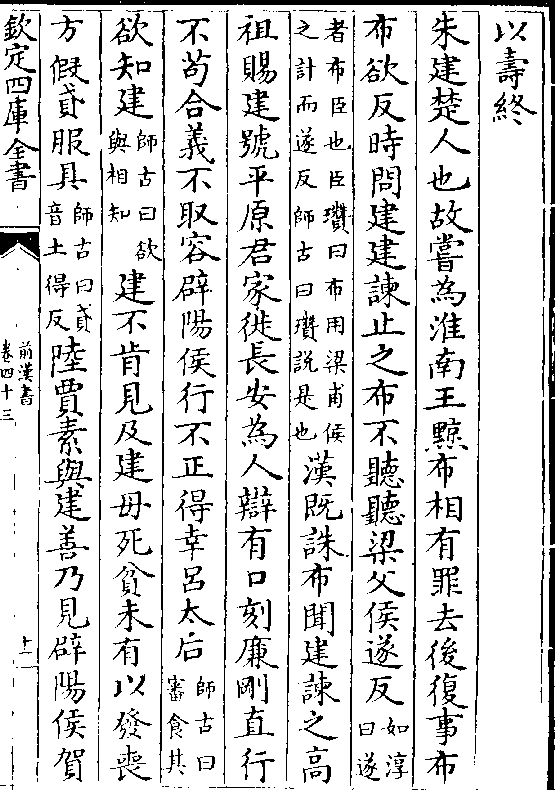 以壽終
朱建楚人也故嘗為淮南王黥布相有罪去後復事布
布欲反時問建建諫止之布不聽聽梁父侯遂反如淳曰遂
者布臣也臣瓚曰布用梁甫侯之計而遂反師古曰瓚說是也漢既誅布聞建諫之高
祖賜建號平原君家徙長安為人辯有口刻廉剛直行
不茍合義不取容辟陽侯行不正得幸呂太后師古曰審食其
欲知建師古曰欲與相知建不肯見及建毋死貧未有以發喪
方假貣服具師古曰貣音土得反陸賈素與建善乃見辟陽侯賀
欽定四庫全書
前漢書
卷四十三
十二